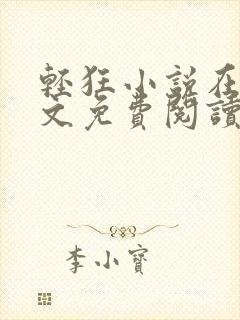 輕狂小說在
文免費閱讀
李小寶